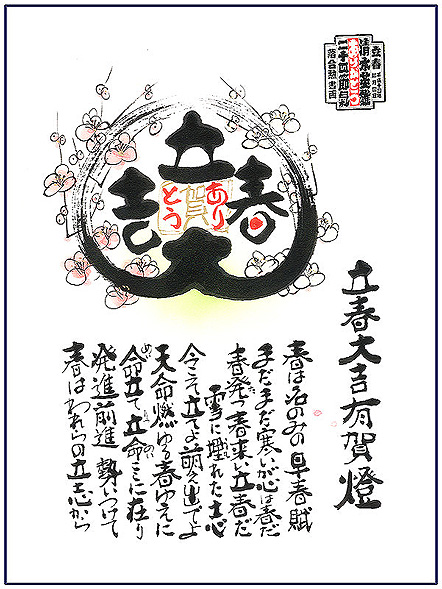 立春大吉
あり
賀
とう
立春
二十四節
落合勲書画
立春大吉有賀燈
春は名のみの早春賦
まだまだ寒いが心は春だ
春発つ春来い立春だ
雪に埋れた立志
今こそ立てよ萌え出でよ
天命燃ゆる春ゆえに
命立て立命ここに在り
めい
発進前進勢いつけて
春はわれらの立志から